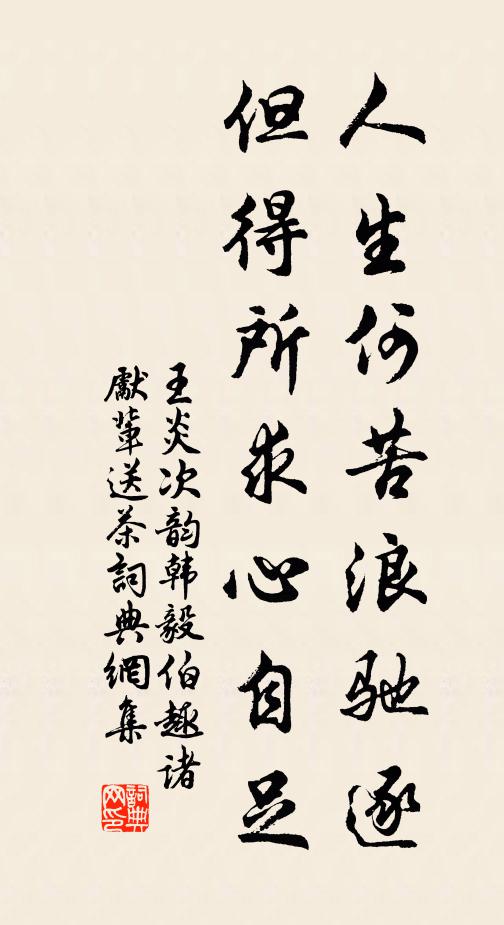 人生何苦浪驰逐
但得所求心自足
王炎次韵韩毅伯趣诸
獻輩送茶詞典網集
詞典网印